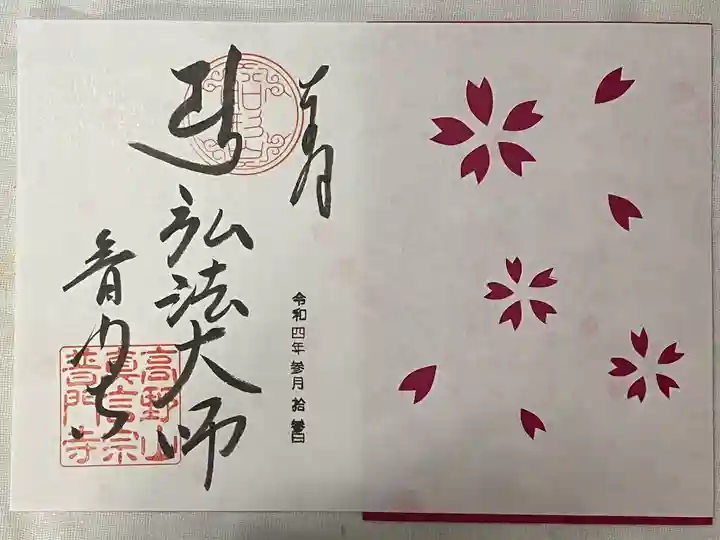 奉拝
令和四年 参月 拾 参日
弘法大師
普門寺
高野山
真言宗
普門寺